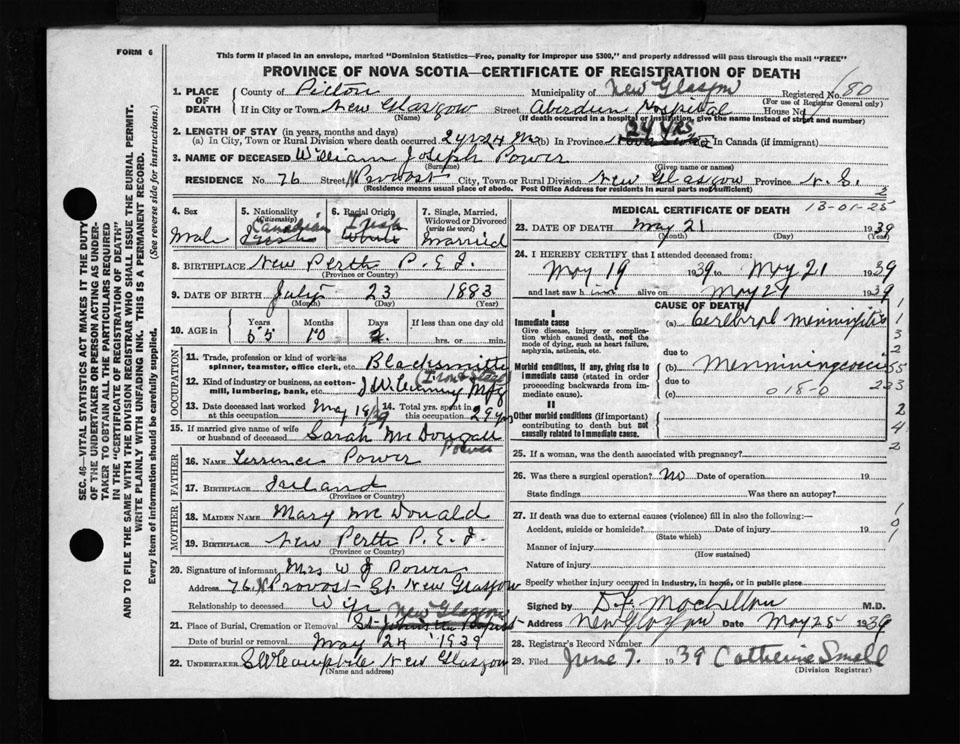 FORM 6
This form if placed in an envelope, marked "Dominion Statistics—Free, penalty for improper use $300," and properly addressed will pass through the mail "FREE"
PROVINCE OF NOVA SCOTIA—CERTIFICATE OF REGISTRATION OF DEATH
1. PLACE OF DEATH County of Pictou Municipality of New Glasgow Registered No. 80
(For use of Registrar General only)
If in City or Town New Glasgow Street Aberdeen Hospital House No.
(Name) (If death occurred in a hospital or institution, give the name instead of street and number)
2. LENGTH OF STAY (in years, months and days) 24 yrs
(a) In City, Town or Rural Division where death occurred (b) In Province In Canada (if immigrant)
3. NAME OF DECEASED William Joseph Power
(Surname) (Given name or names)
RESIDENCE No. 76 Street N Provost City, Town or Rural Division New Glasgow Province N. S.
(Residence means usual place of abode. Post Office Address for residents in rural parts not sufficient)
4. Sex 5. Nationality (Citizenship) 6. Racial Origin 7. Single, Married, Widowed or Divorced (write the word)
Male Canadian Irish Married
8. BIRTHPLACE New Perth P. E. I.
(Province or Country)
9. DATE OF BIRTH July 23 1883
(Month) (Day) (Year)
10. AGE in Years Months Days If less than one day old
55 10 hrs. or min.
OCCUPATION
11. Trade, profession or kind of work as spinner, teamster, office clerk, etc. Blacksmith
12. Kind of industry or business, as cotton-mill, lumbering, bank, etc. Mfg
13. Date deceased last worked at this occupation May 19/39 14. Total yrs. spent in this occupation 29 yrs
15. If married give name of wife or husband of deceased Sarah McDougall Power
FATHER
16. NAME Terrence Power
17. BIRTHPLACE Ireland
(Province or Country)
MOTHER
18. MAIDEN NAME Mary McDonald
19. BIRTHPLACE New Perth P. E. I.
(Province or Country)
20. Signature of informant Mrs W J Power
Address 76 N Provost St. New Glasgow
Relationship to deceased Wife
21. Place of Burial, Cremation or Removal New Glasgow
Date of burial or removal May 24 1939
22. UNDERTAKER New Glasgow
(Name and address)
MEDICAL CERTIFICATE OF DEATH 13-01-25
3
23. DATE OF DEATH May 21 1939
(Month) (Day) (Year)
24. I HEREBY CERTIFY that I attended deceased from:
May 19 1939 to May 21 1939
and last saw him alive on May 21 1939
CAUSE OF DEATH
I
Immediate cause (a) Cerebral Meningitis
Give disease, injury or complication which caused death, not the mode of dying, such as heart failure, asphyxia, asthenia, etc.
due to
Morbid conditions, if any, giving rise to immediate cause (stated in order proceeding backwards from immediate cause) (b)
due to
(c) 018-0
II
Other morbid conditions (if important) contributing to death but not causally related to immediate cause.
25. If a woman, was the death associated with pregnancy?
26. Was there a surgical operation? No Date of operation 19
State findings Was there an autopsy?
27. If death was due to external causes (violence) fill in also the following:—
Accident, suicide or homicide? Date of injury 19
(State which)
Manner of injury
(How sustained)
Nature of injury
Specify whether injury occurred in industry, in home, or in public place
Signed by M.D.
Address New Glasgow Date May 25 1939
28. Registrar's Record Number
29. Filed June 7. 1939 Catherine Small
(Division Registrar)
SEC. 46—VITAL STATISTICS ACT MAKES IT THE DUTY OF THE UNDERTAKER OR PERSON ACTING AS UNDERTAKER TO OBTAIN ALL THE PARTICULARS REQUIRED IN THE "CERTIFICATE OF REGISTRATION OF DEATH" AND TO FILE THE SAME WITH THE DIVISION REGISTRAR WHO SHALL ISSUE THE BURIAL PERMIT.
WRITE PLAINLY WITH UNFADING INK. THIS IS A PERMANENT RECORD.
Every item of information should be carefully supplied. (See reverse side for instructions.)